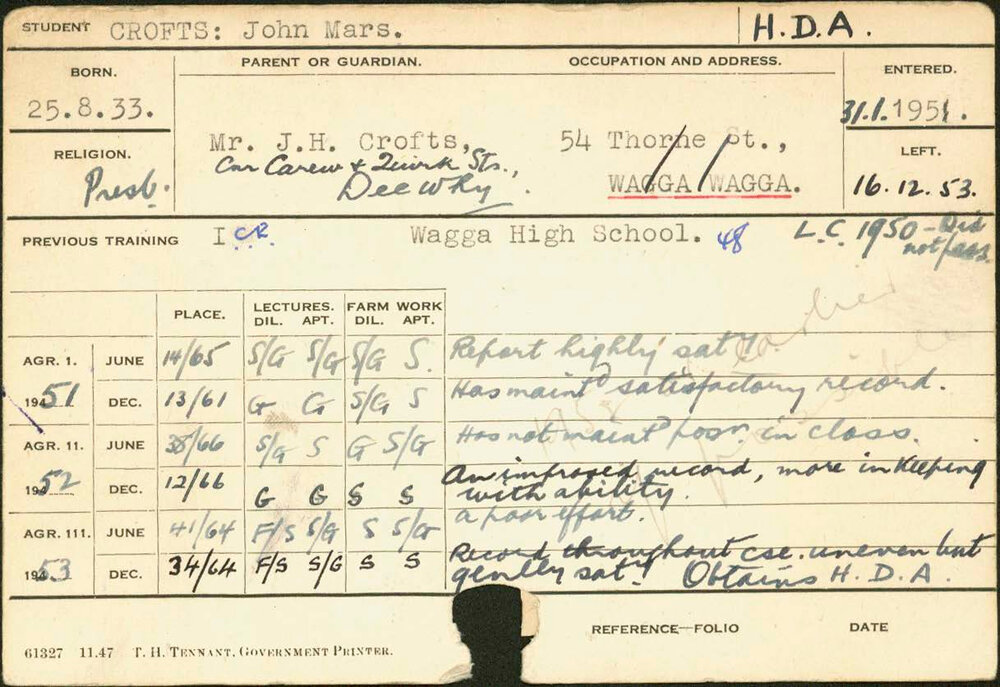 STUDENT CROFTS: John Mars. H.D.A.
BORN. PARENT OR GUARDIAN. OCCUPATION AND ADDRESS. ENTERED.
25.8.33. 31.1.1951.
Mr. J.H. Crofts, 54 Thorne St.,
RELIGION. Cnr Carew & Quirk Sts., LEFT.
Presb. Dee Why WAGGA WAGGA. 16.12.53.
PREVIOUS TRAINING I CR Wagga High School. 48 L.C. 1950 - Did
not pass.
PLACE. LECTURES. FARM WORK
DIL. APT. DIL. APT.
AGR. 1. JUNE 14/65 S/G S/G S/G S. Report highly sat'y.
1951 DEC. 13/61 G G S/G S Has maintd satisfactory record.
AGR. 11. JUNE 38/66 S/G S G S/G Has not maintd posn. in class.
1952 DEC. 12/66 G G S S An improved record, more in keeping
with ability.
AGR. 111. JUNE 41/64 F/S S/G S S/G a poor effort.
1953 DEC. 34/64 F/S S/G S S Record throughout cse. uneven but
genlly sat'y. Obtains H.D.A.
REFERENCE—FOLIO DATE
61327 11.47 T. H. TENNANT, GOVERNMENT PRINTER.